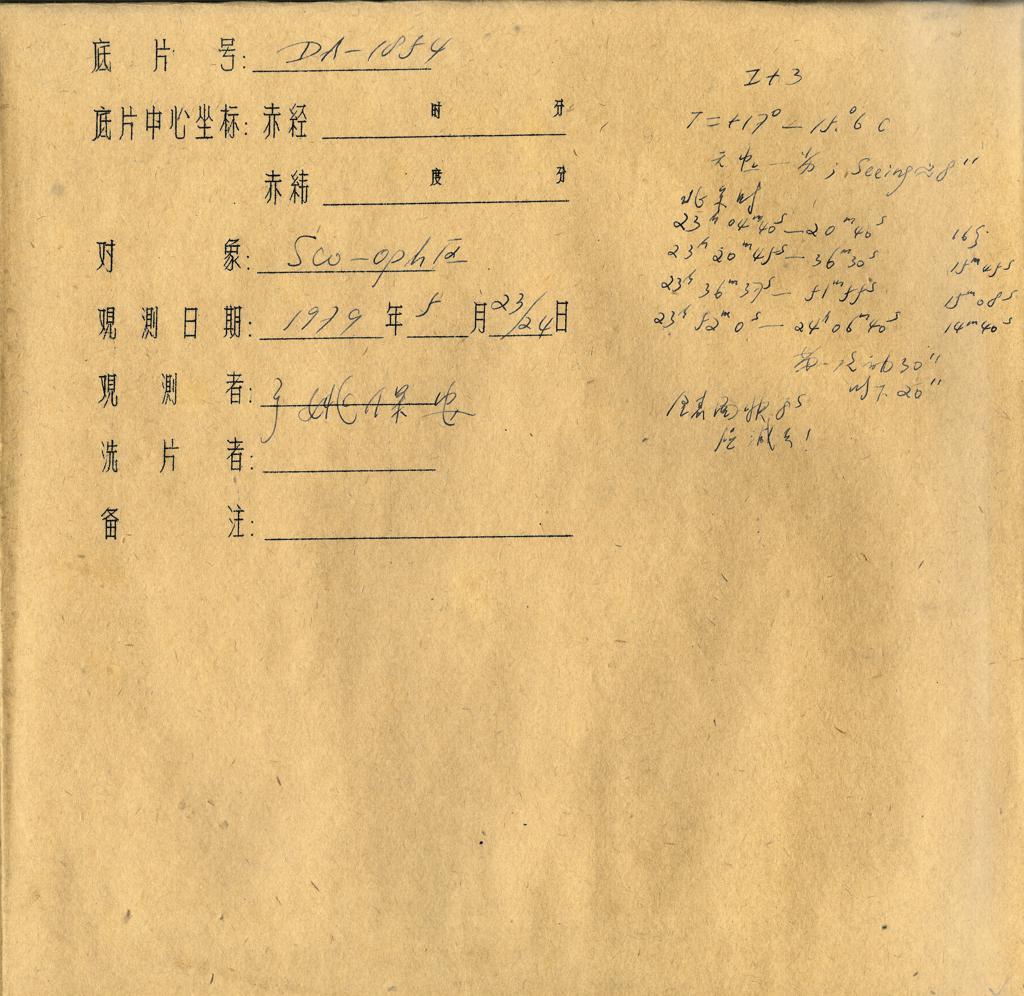 底片号: DA-1854
底片中心坐标: 赤经 时 分
赤纬 度 分
对象: Sco-oph IV
观测日期: 1979年5月23/24日
观测者:
洗片者:
备注:
I+3
T=+17° — 15.°6 C
; Seeing≈8"
北京时
23ʰ04ᵐ40ˢ—20ᵐ40ˢ 16
23ʰ20ᵐ45ˢ—36ᵐ30ˢ 15ᵐ45ˢ
23ʰ36ᵐ37ˢ—51ᵐ55ˢ 15ᵐ08ˢ
23ʰ52ᵐ0ˢ—24ʰ06ᵐ40ˢ 14ᵐ40ˢ
30"
20"
快8ˢ
应减去!